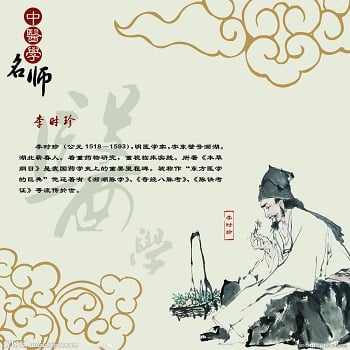 中醫學
名师
李时珍
李时珍（公元1518—1593），明医学家，字东璧号濒湖。
湖北蕲春人。着重药物研究，重视临床实践。所著《本草
纲目》是我国药学史上的重要里程碑。被称作“东方医学
的巨典”他还著有《濒湖脉学》、《奇经八脉考》、《脉诀考
证》等流传於世。
醫
學
李时珍